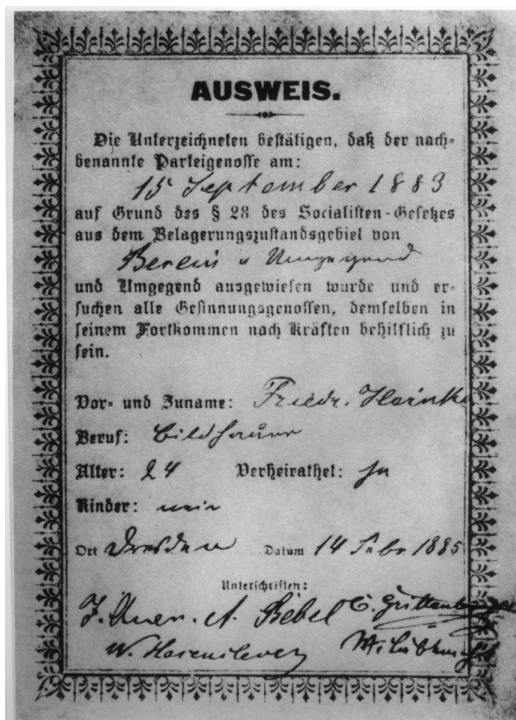 AUSWEIS.
Die Unterzeichneten bestätigen, daß der nach-
benannte Parteigenosse am:
15 September 1883
auf Grund des § 28 des Socialisten-Gesetzes
aus dem Belagerungszustandsgebiet von
Berlin u Umgegend
und Umgegend ausgewiesen wurde und er-
suchen alle Gesinnungsgenossen, demselben in
seinem Fortkommen nach Kräften behilflich zu
sein.
Vor- und Zuname: Friedr.
Beruf: Bildhauer
Alter: 24 Verheirathet: ja
Kinder:
Ort Dresden Datum 14 Febr 1885
Unterschriften:
I. Auer. A. Bebel
W. Hasenclever W. Liebknecht